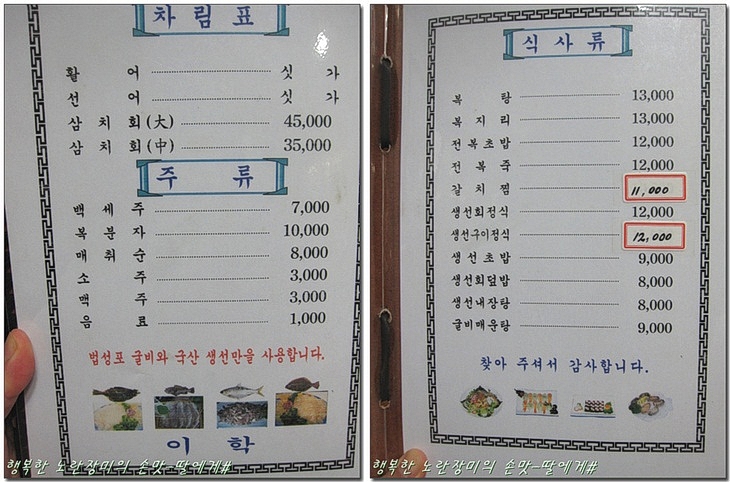 차 림 표
활 어 싯 가
선 어 싯 가
삼 치 회 (大) 45,000
삼 치 회 (中) 35,000
주 류
백 세 주 7,000
복 분 자 10,000
매 취 순 8,000
소 주 3,000
맥 주 3,000
음 료 1,000
법성포 굴비와 국산 생선만을 사용합니다.
이 학
행복한 노란장미의 손맛-딸에게#
식 사 류
복 탕 13,000
복 지 리 13,000
전 복 초 밥 12,000
전 복 죽 12,000
갈 치 찜 11,000
생선회정식 12,000
생선구이정식 12,000
생 선 초 밥 9,000
생선회덮밥 8,000
생선내장탕 8,000
굴비매운탕 9,000
찾아 주셔서 감사합니다.
행복한 노란장미의 손맛-딸에게#